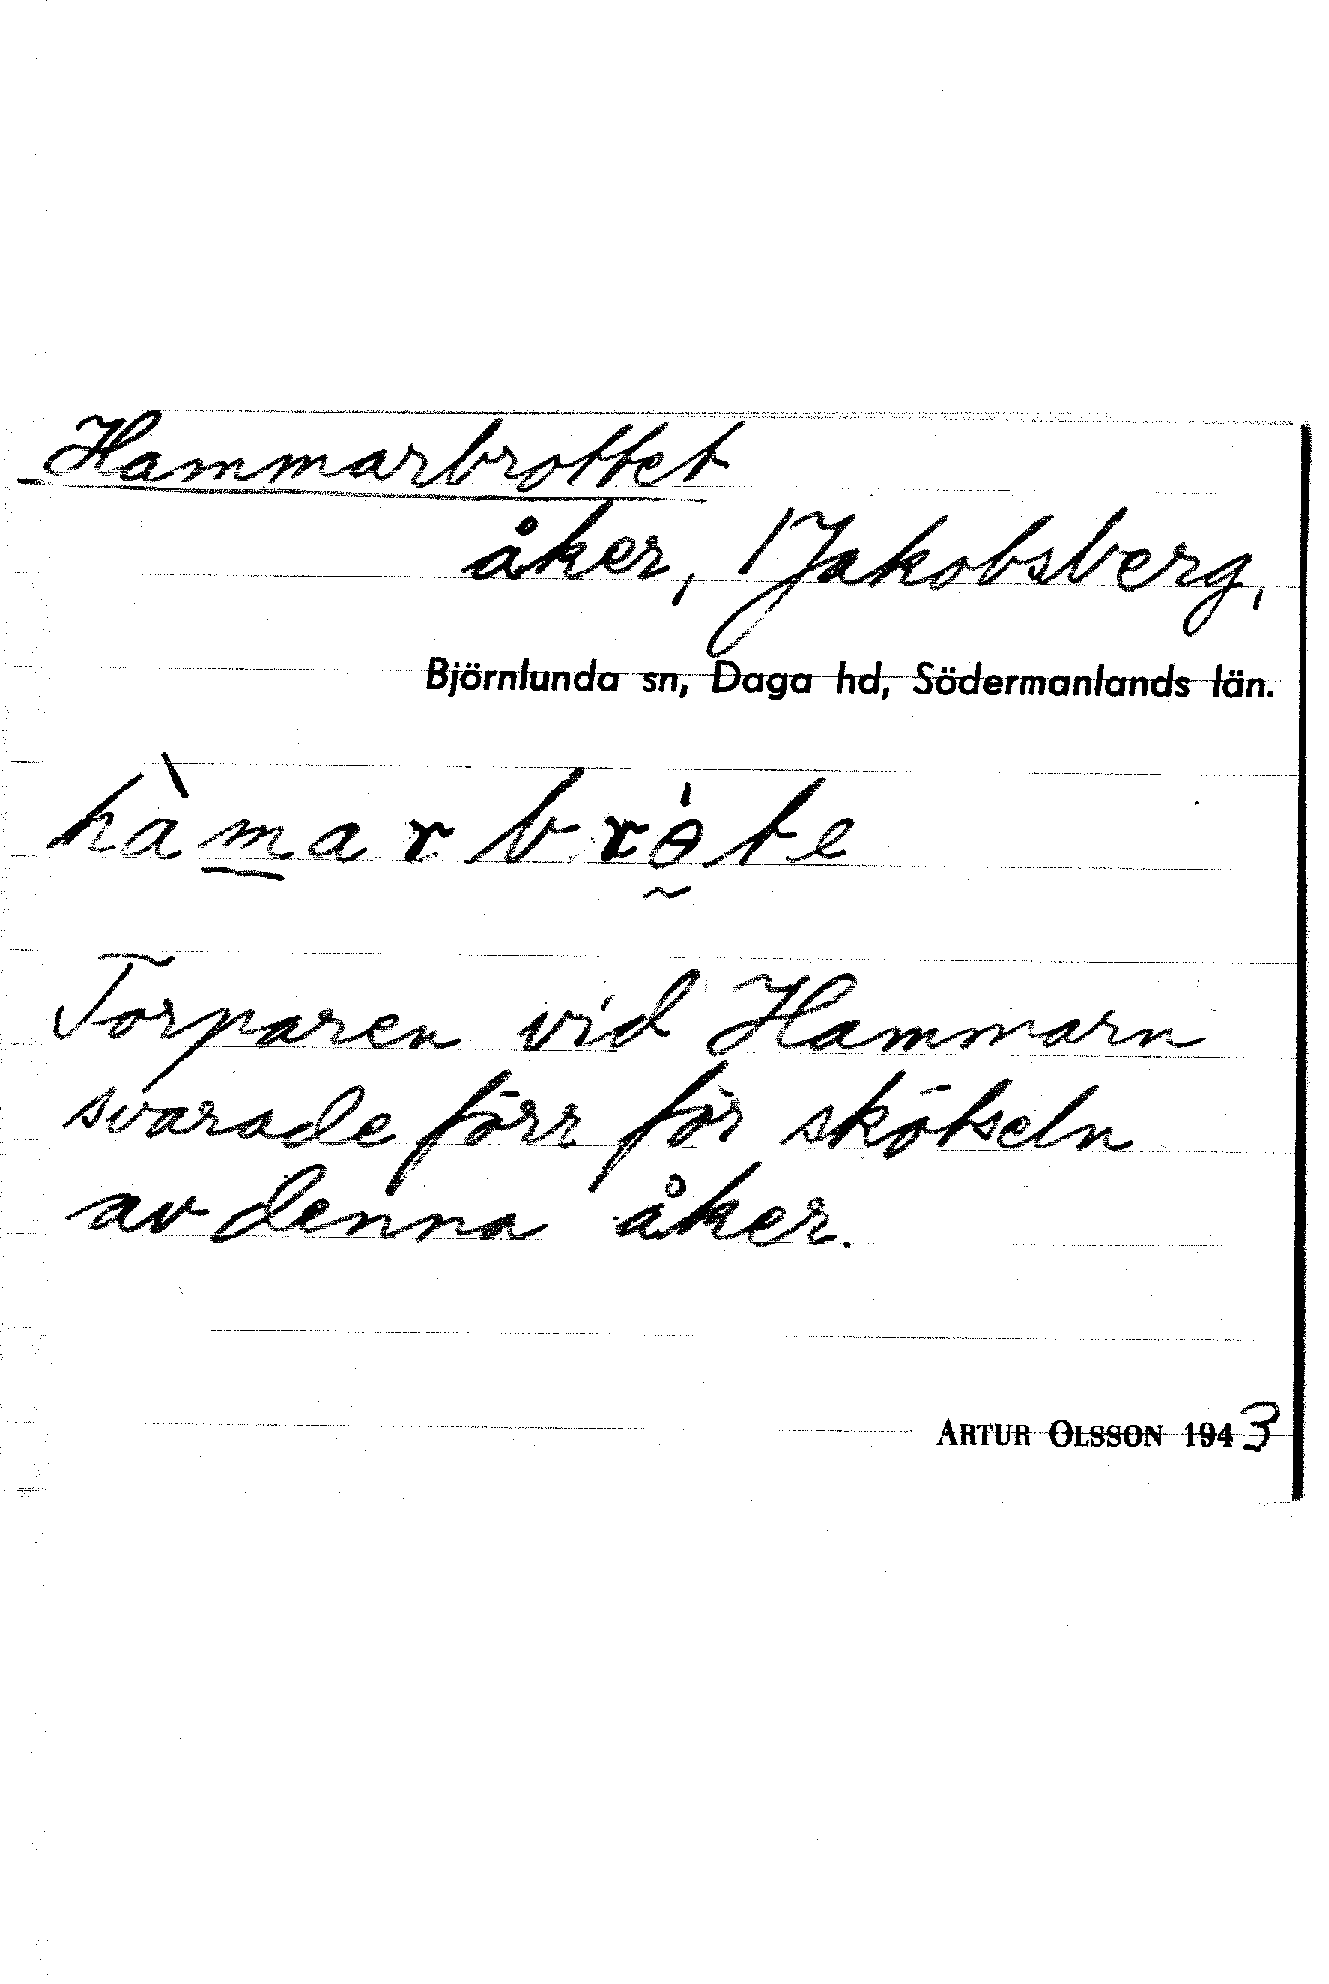 Hammarbrottet
åker, Jakobsberg,
Björnlunda sn, Daga hd, Södermanlands län.
hàmarbrɵ́te
Torparen vid Hammarn
svarade förr för skötseln
av denna åker.
ARTUR OLSSON 1943